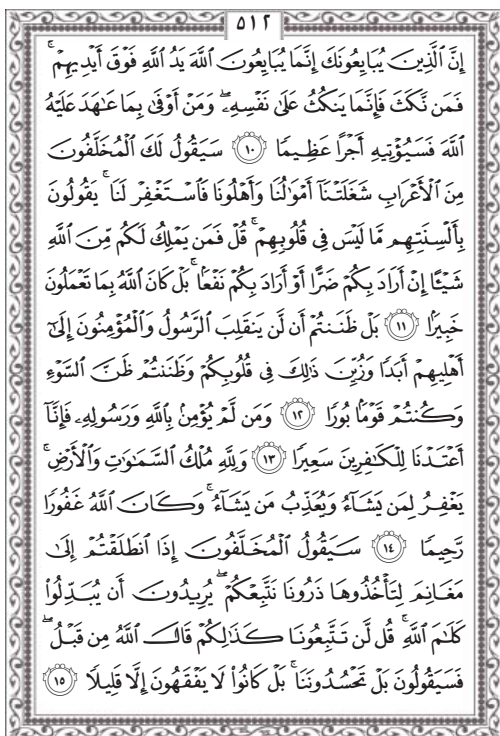 ٥١٢
إِنَّ ٱلَّذِينَ يُبَايِعُونَكَ إِنَّمَا يُبَايِعُونَ ٱللَّهَ يَدُ ٱللَّهِ فَوْقَ أَيْدِيهِمْ ۚ
فَمَن نَّكَثَ فَإِنَّمَا يَنكُثُ عَلَىٰ نَفْسِهِۦ ۖ وَمَنْ أَوْفَىٰ بِمَا عَٰهَدَ عَلَيْهُ
ٱللَّهَ فَسَيُؤْتِيهِ أَجْرًا عَظِيمًا ١٠ سَيَقُولُ لَكَ ٱلْمُخَلَّفُونَ
مِنَ ٱلْأَعْرَابِ شَغَلَتْنَآ أَمْوَٰلُنَا وَأَهْلُونَا فَٱسْتَغْفِرْ لَنَا ۚ يَقُولُونَ
بِأَلْسِنَتِهِم مَّا لَيْسَ فِى قُلُوبِهِمْ ۚ قُلْ فَمَن يَمْلِكُ لَكُم مِّنَ ٱللَّهِ
شَيْـًٔا إِنْ أَرَادَ بِكُمْ ضَرًّا أَوْ أَرَادَ بِكُمْ نَفْعًۢا ۚ بَلْ كَانَ ٱللَّهُ بِمَا تَعْمَلُونَ
خَبِيرًۢا ١١ بَلْ ظَنَنتُمْ أَن لَّن يَنقَلِبَ ٱلرَّسُولُ وَٱلْمُؤْمِنُونَ إِلَىٰٓ
أَهْلِيهِمْ أَبَدًا وَزُيِّنَ ذَٰلِكَ فِى قُلُوبِكُمْ وَظَنَنتُمْ ظَنَّ ٱلسَّوْءِ
وَكُنتُمْ قَوْمًۢا بُورًا ١٢ وَمَن لَّمْ يُؤْمِنۢ بِٱللَّهِ وَرَسُولِهِۦ فَإِنَّآ
أَعْتَدْنَا لِلْكَٰفِرِينَ سَعِيرًا ١٣ وَلِلَّهِ مُلْكُ ٱلسَّمَٰوَٰتِ وَٱلْأَرْضِ ۚ
يَغْفِرُ لِمَن يَشَآءُ وَيُعَذِّبُ مَن يَشَآءُ ۚ وَكَانَ ٱللَّهُ غَفُورًا
رَّحِيمًا ١٤ سَيَقُولُ ٱلْمُخَلَّفُونَ إِذَا ٱنطَلَقْتُمْ إِلَىٰ
مَغَانِمَ لِتَأْخُذُوهَا ذَرُونَا نَتَّبِعْكُمْ ۖ يُرِيدُونَ أَن يُبَدِّلُوا۟
كَلَٰمَ ٱللَّهِ ۚ قُل لَّن تَتَّبِعُونَا كَذَٰلِكُمْ قَالَ ٱللَّهُ مِن قَبْلُ ۖ
فَسَيَقُولُونَ بَلْ تَحْسُدُونَنَا ۚ بَلْ كَانُوا۟ لَا يَفْقَهُونَ إِلَّا قَلِيلًا ١٥